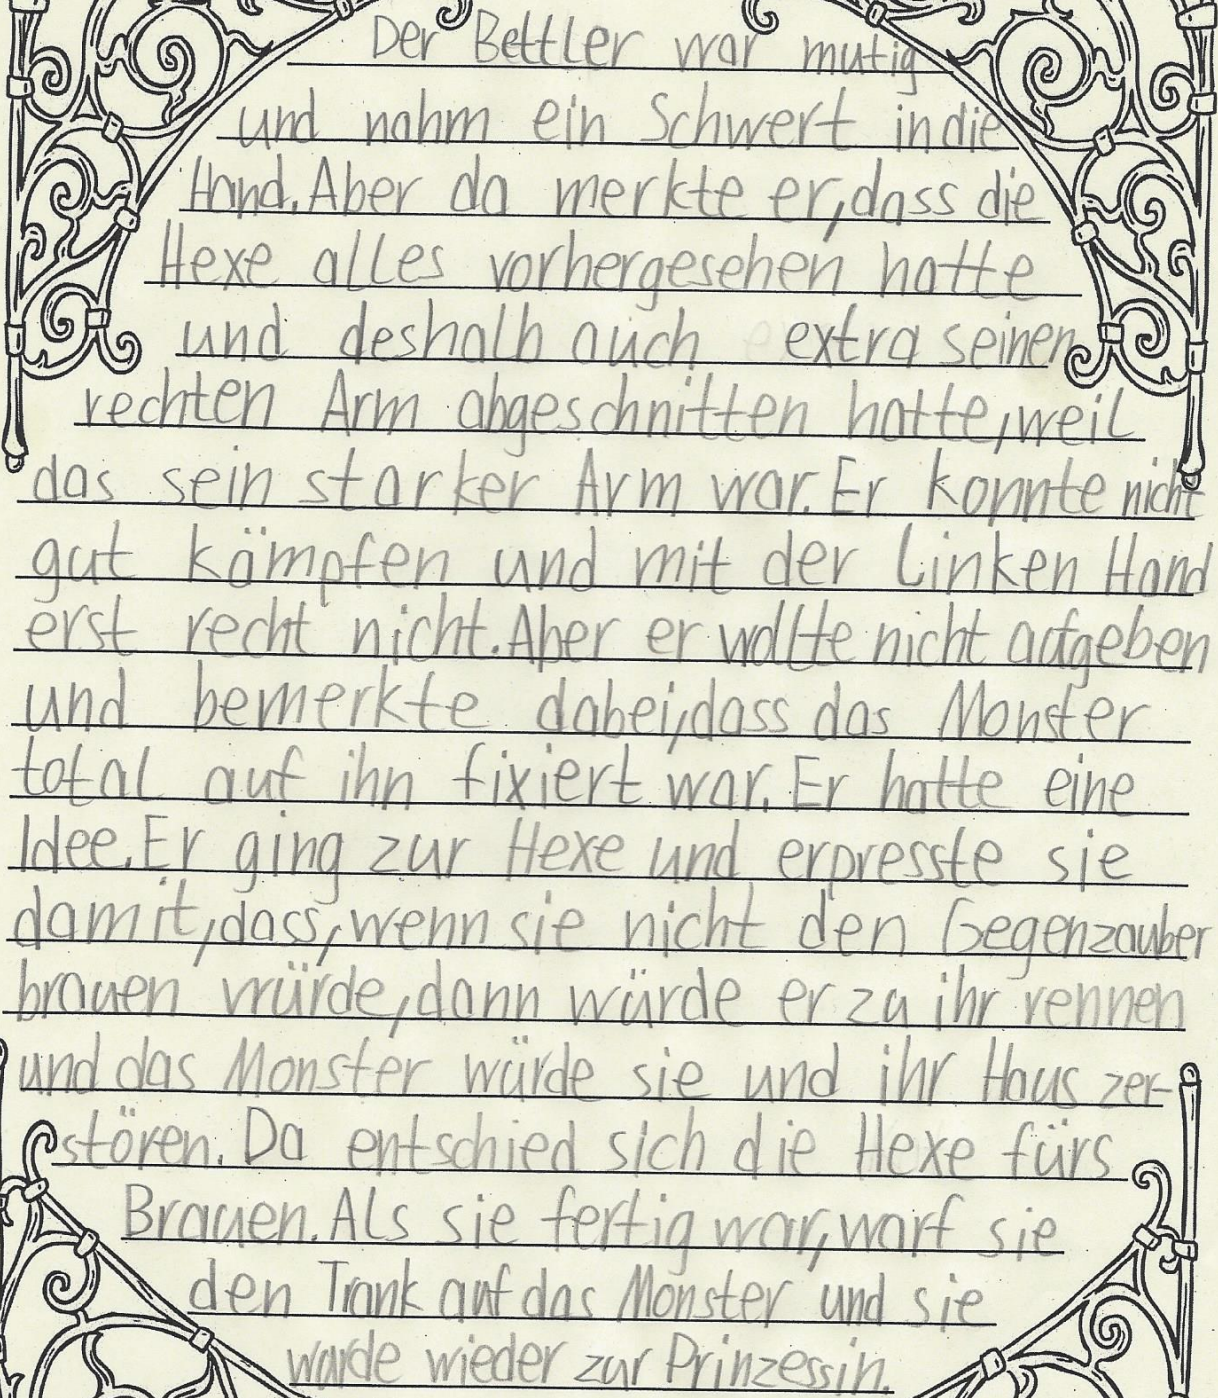 Der Bettler war mutig
und nahm ein Schwert in die
Hand. Aber da merkte er, dass die
Hexe alles vorhergesehen hatte
und deshalb auch extra seinen
rechten Arm abgeschnitten hatte, weil
das sein starker Arm war. Er konnte nicht
gut kämpfen und mit der linken Hand
erst recht nicht. Aber er wollte nicht aufgeben
und bemerkte dabei, dass das Monster
total auf ihn fixiert war. Er hatte eine
Idee. Er ging zur Hexe und erpresste sie
damit, dass, wenn sie nicht den Gegenzauber
brauen würde, dann würde er zu ihr rennen
und das Monster würde sie und ihr Haus zer-
stören. Da entschied sich die Hexe fürs
Brauen. Als sie fertig war, warf sie
den Trank auf das Monster und sie
wurde wieder zur Prinzessin.